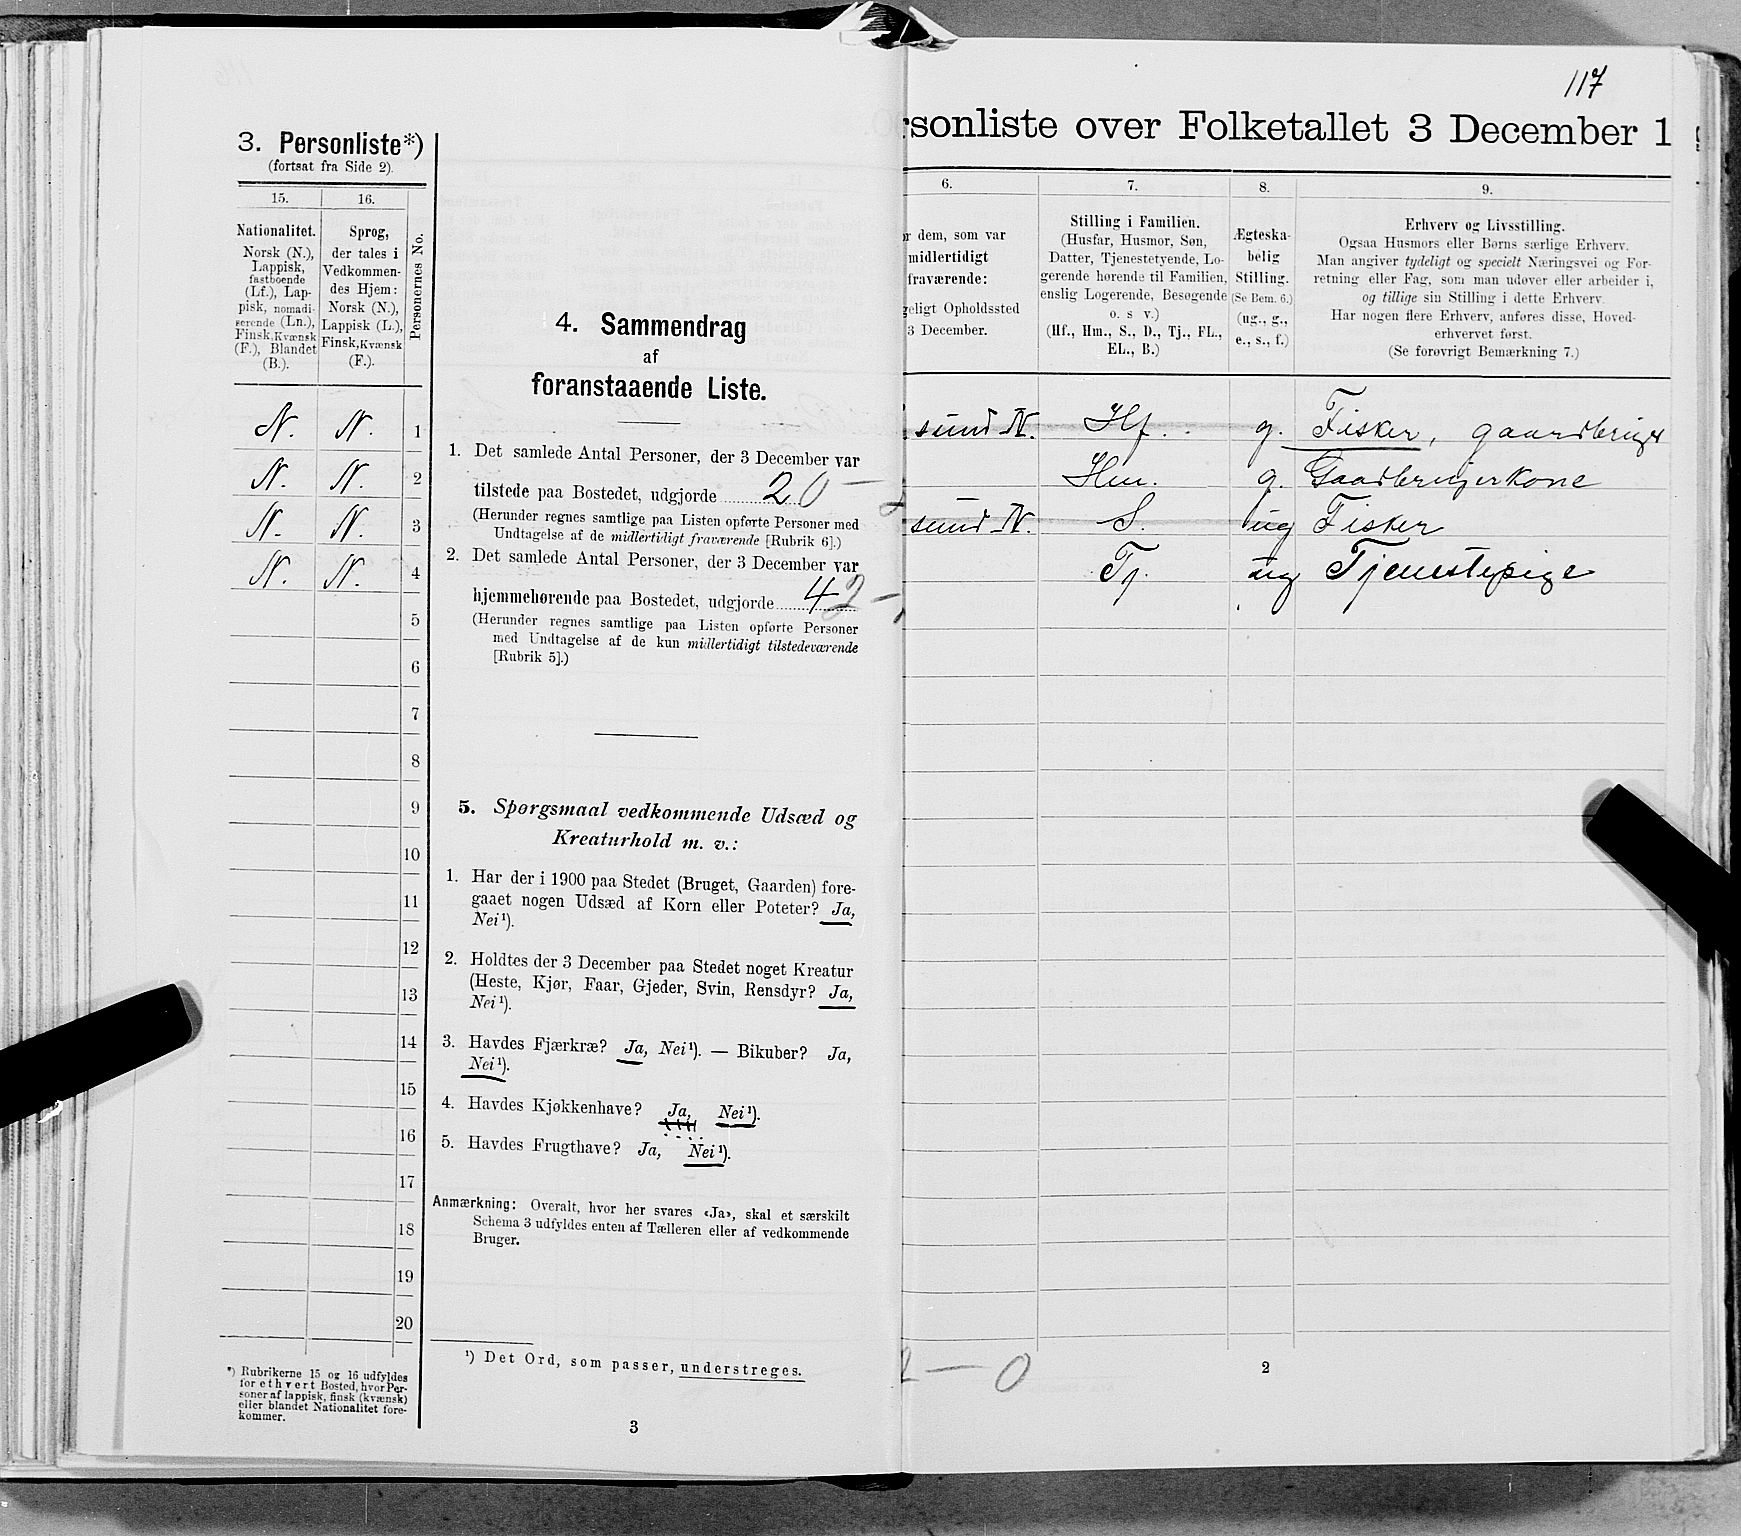 3. Personliste*)
(fortsat fra Side 2).
15.
16.
Nationalitet.
Norsk (N.),
Lappisk,
fastboende
(Lf.), Lap-
pisk, nomadi-
serende (Ln.),
Finsk, Kvænsk
(F.), Blandet
(B.).
Sprog,
der tales i
Vedkommen-
des Hjem:
Norsk (N.),
Lappisk (L.),
Finsk, Kvænsk
(F.).
Personernes No.
N. N. 1
N. N. 2
N. N. 3
N. N. 4
5
6
7
8
9
10
11
12
13
14
15
16
17
18
19
20
*) Rubrikerne 15 og 16 udfyldes
for ethvert Bosted, hvor Per-
soner af lappisk, finsk (kvænsk)
eller blandet Nationalitet fore-
kommer.
4. Sammendrag
af
foranstaaende Liste.
1. Det samlede Antal Personer, der 3 December var
tilstede paa Bostedet, udgjorde 2 0 —
(Herunder regnes samtlige paa Listen opførte Personer med
Undtagelse af de midlertidigt fraværende [Rubrik 6].)
2. Det samlede Antal Personer, der 3 December var
hjemmehørende paa Bostedet, udgjorde 4 2 —
(Herunder regnes samtlige paa Listen opførte Personer
med Undtagelse af de kun midlertidigt tilstedeværende
[Rubrik 5].)
5. Spørgsmaal vedkommende Udsæd og
Kreaturhold m. v.:
1. Har der i 1900 paa Stedet (Bruget, Gaarden) fore-
gaaet nogen Udsæd af Korn eller Poteter? Ja,
Nei¹).
2. Holdtes der 3 December paa Stedet noget Kreatur
(Heste, Kjør, Faar, Gjeder, Svin, Rensdyr? Ja,
Nei¹).
3. Havdes Fjærkræ? Ja, Nei¹). — Bikuber? Ja,
Nei¹).
4. Havdes Kjøkkenhave? Ja, Nei¹).
5. Havdes Frugthave? Ja, Nei¹).
Anmærkning: Overalt, hvor her svares «Ja», skal et særskilt
Schema 3 udfyldes enten af Tælleren eller af vedkommende
Bruger.
¹) Det Ord, som passer, understreges.
3
117
rsonliste over Folketallet 3 December 1
6.
7.
8.
9.
r dem, som var
midlertidigt
fraværende:
geligt Opholdssted
3 December.
Stilling i Familien.
(Husfar, Husmor, Søn,
Datter, Tjenestetyende, Lo-
gerende hørende til Familien,
enslig Logerende, Besøgende
o. s v.)
(Hf., Hm., S., D., Tj., FL.,
EL., B.)
Ægteska-
belig
Stilling.
(Se Bem. 6.)
(ug., g.,
e., s., f.)
Erhverv og Livsstilling.
Ogsaa Husmors eller Børns særlige Erhverv.
Man angiver tydeligt og specielt Næringsvei og For-
retning eller Fag, som man udøver eller arbeider i,
og tillige sin Stilling i dette Erhverv.
Har nogen flere Erhverv, anføres disse, Hoved-
erhvervet først.
(Se forøvrigt Bemærkning 7.)
sund N. Hf. g. Fisker, gaardbruger
Hm. g. Gaardbrugerkone
sund N. S. ug Fisker
Tj. ug Tjenestepige
2 — 0
2